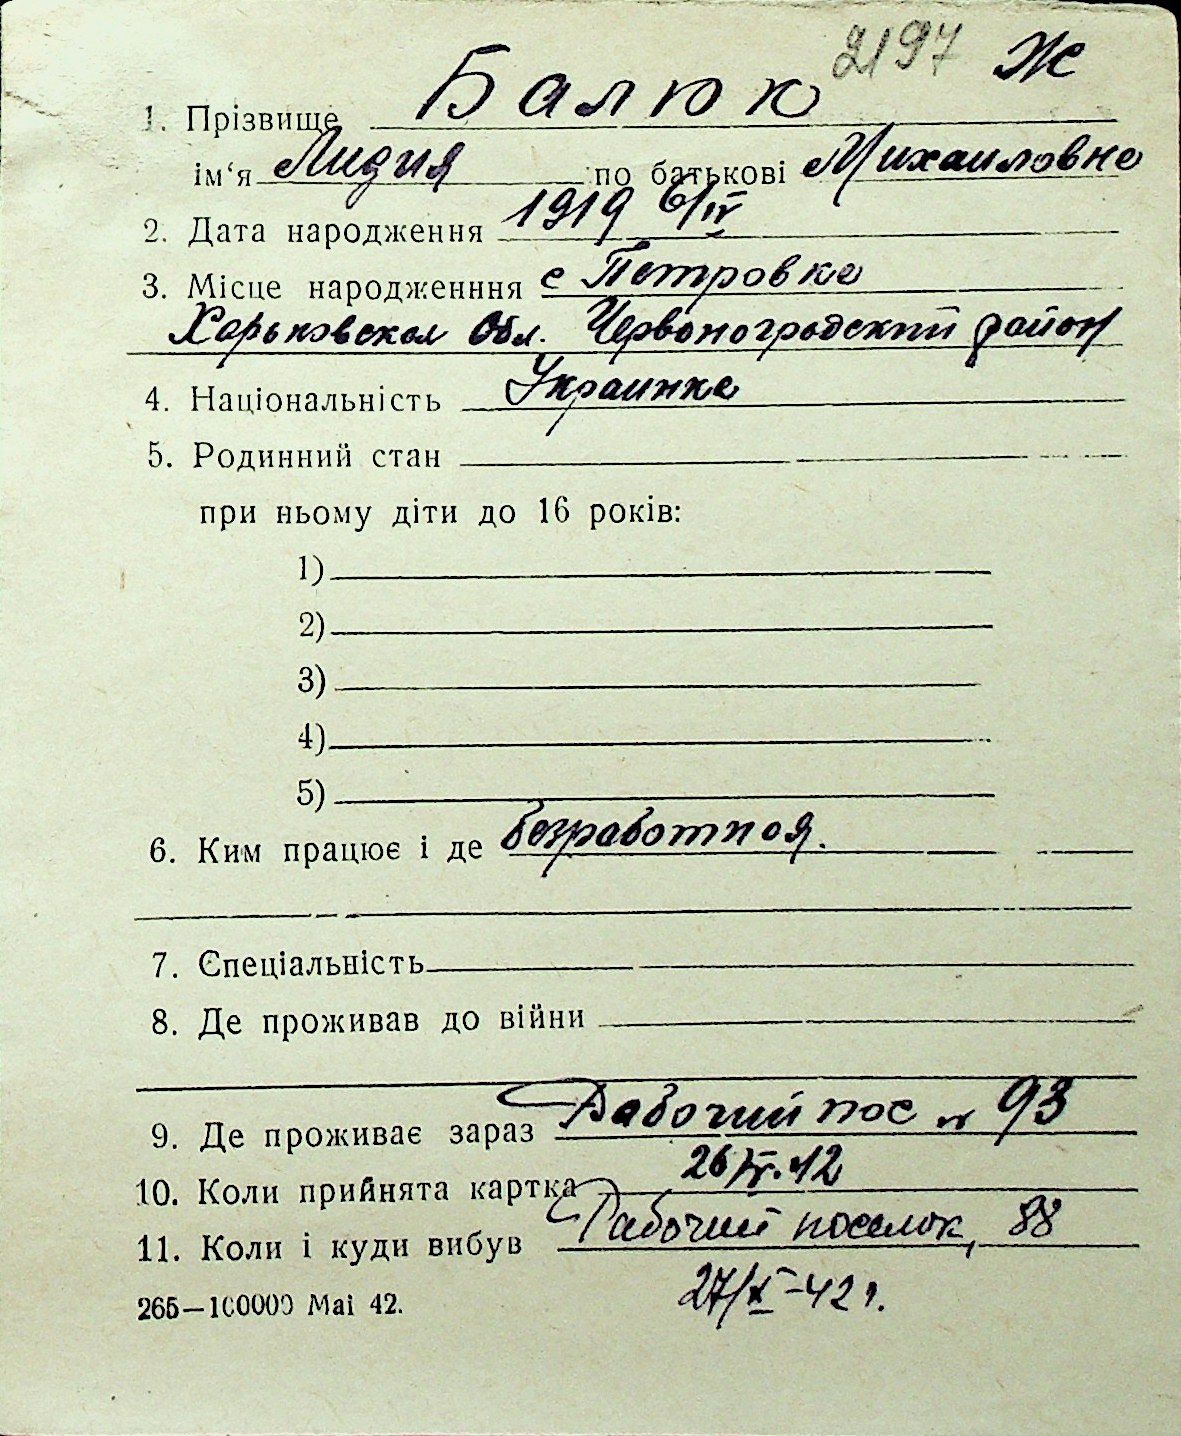 2197 Ж
1. Прізвище Балюк
ім'я Лидия по батькові Михаиловна
2. Дата народження 1919 6/IV
3. Місце народженння с Петровка
Харьковская Обл. Червоноградский район
4. Національність Украинка
5. Родинний стан
при ньому діти до 16 років:
1)
2)
3)
4)
5)
6. Ким працює і де безработная.
7. Єпеціальність
8. Де проживав до війни
9. Де проживає зараз Рабочий пос № 93
10. Коли прийнята картка 26/IV.42
11. Коли і куди вибув Рабочий поселок, 88
265—100000 Mai 42. 27/X-42 г.